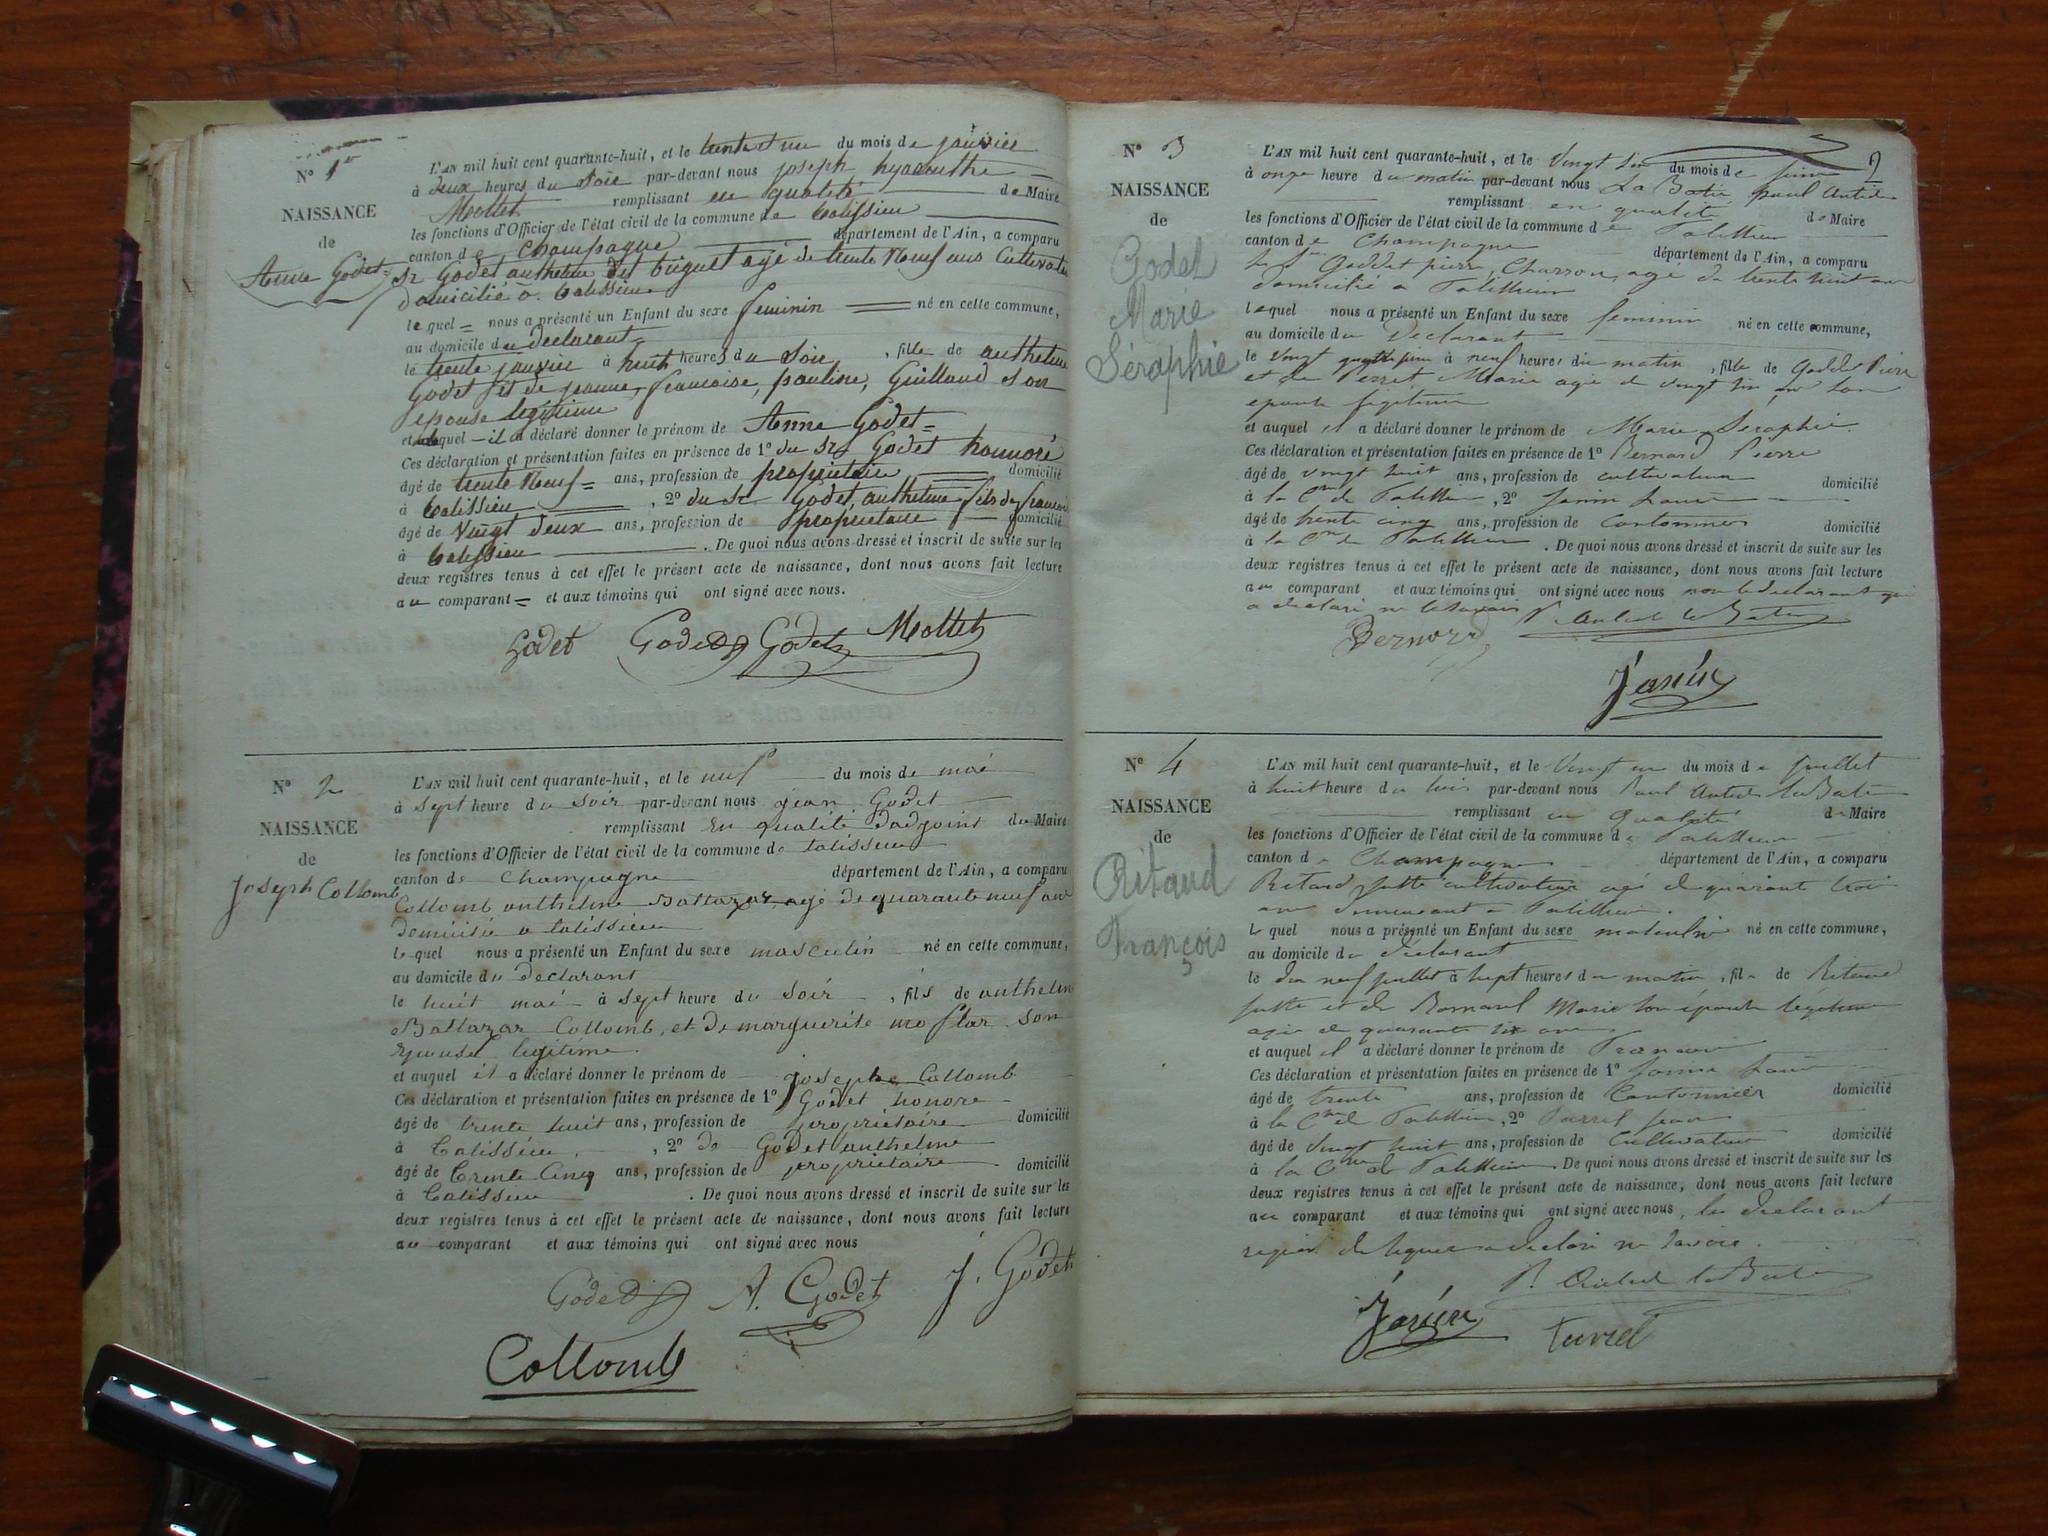 N° 1er
NAISSANCE
de
Anne Godet
L'AN mil huit cent quarante-huit, et le trente et un du mois de janvier
à deux heures du Soir par-devant nous joseph hyacinthe
Mollet remplissant en qualité de Maire
les fonctions d'Officier de l'état civil de la commune de talissieu
canton de champagne département de l'Ain, a comparu
Sr Godet anthelme dit agé de trente neuf ans Cultivateur
domicilié à talissieu
lequel nous a présenté un Enfant du sexe feminin né en cette commune,
au domicile du declarant
le trente janvier à huit heures du Soir, fille de anthelme
Godet et de jeanne, francoise, pauline, Guilland son
epouse legitime
et auquel il a déclaré donner le prénom de Anne Godet
Ces déclaration et présentation faites en présence de 1° du Sr Godet honnoré
âgé de trente neuf ans, profession de propriétaire domicilié
à talissieu, 2° du Sr Godet anthelme fils de francois
âgé de vingt deux ans, profession de propriétaire domicilié
à talissieu. De quoi nous avons dressé et inscrit de suite sur les
deux registres tenus à cet effet le présent acte de naissance, dont nous avons fait lecture
au comparant et aux témoins qui ont signé avec nous.
Godet Godet Godet Mollet
N° 2
NAISSANCE
de
Joseph Collomb
L'AN mil huit cent quarante-huit, et le neuf du mois de mai
à sept heure du soir par-devant nous jean Godet
remplissant en qualité dadjoint du Maire
les fonctions d'Officier de l'état civil de la commune de talissieu
canton de champagne département de l'Ain, a comparu
Collomb anthelme Baltazar, agé de quarante neuf ans
à talissieu
lequel nous a présenté un Enfant du sexe masculin né en cette commune,
au domicile du declarant
le huit mai à sept heure du soir, fils de anthelme
Baltazar Collomb, et de marguerite son
epouse legitime
et auquel il a déclaré donner le prénom de josephe Collomb
Ces déclaration et présentation faites en présence de 1° Godet honore
âgé de trente huit ans, profession de propriétaire domicilié
à talissieu, 2° de Godet anthelme
âgé de trente cinq ans, profession de proprietaire domicilié
à talissieu. De quoi nous avons dressé et inscrit de suite sur les
deux registres tenus à cet effet le présent acte de naissance, dont nous avons fait lecture
au comparant et aux témoins qui ont signé avec nous
Godet A. Godet J. Godet
Collomb
N° 3
NAISSANCE
de
Godet
Marie
Séraphie
L'AN mil huit cent quarante-huit, et le Vingt du mois de juin
à onze heure du matin par-devant nous La Batie paul Antide
remplissant en qualité de Maire
les fonctions d'Officier de l'état civil de la commune de Talissieu
canton de Champagne département de l'Ain, a comparu
le Sr Goddet pierre, Charron, agé de trente huit ans
domicilié a Talissieu
lequel nous a présenté un Enfant du sexe feminin né en cette commune,
au domicile du Declarant
le Vingt à neuf heures du matin, fille de Goddet Pierre
et de Perret Marie agée de vingt ans son
epouse legitime
et auquel il a déclaré donner le prénom de Marie Seraphie
Ces déclaration et présentation faites en présence de 1° Bernard Pierre
âgé de vingt huit ans, profession de cultivateur domicilié
à la Cne de Talissieu, 2° Janin
âgé de trente cinq ans, profession de Cantonnier domicilié
à la Cne de Talissieu. De quoi nous avons dressé et inscrit de suite sur les
deux registres tenus à cet effet le présent acte de naissance, dont nous avons fait lecture
au comparant et aux témoins qui ont signé avec nous non le declarant qui
a declaré ne le savoir P. Antide la Batie
Bernard
Janin
N° 4
NAISSANCE
de
Ritaud
François
L'AN mil huit cent quarante-huit, et le Vingt un du mois de Juillet
à huit heure du soir par-devant nous Paul Antide la Batie
remplissant en qualité de Maire
les fonctions d'Officier de l'état civil de la commune de Talissieu
canton de Champagne département de l'Ain, a comparu
Ritaud cultivateur agé de quarante trois
ans demeurant a Talissieu.
lequel nous a présenté un Enfant du sexe masculin né en cette commune,
au domicile du declarant
le dix neuf juillet à sept heures du matin, fils de Ritaud
et de Marie son épouse légitime
agée de quarante six ans
et auquel il a déclaré donner le prénom de Francois
Ces déclaration et présentation faites en présence de 1° Janin
âgé de trente ans, profession de Cantonnier domicilié
à la Cne de Talissieu, 2° jean
âgé de vingt huit ans, profession de Cultivateur domicilié
à la Cne de Talissieu. De quoi nous avons dressé et inscrit de suite sur les
deux registres tenus à cet effet le présent acte de naissance, dont nous avons fait lecture
au comparant et aux témoins qui ont signé avec nous, le declarant
requis de signer a declaré ne savoir.
P. Antide la Batie
Janin